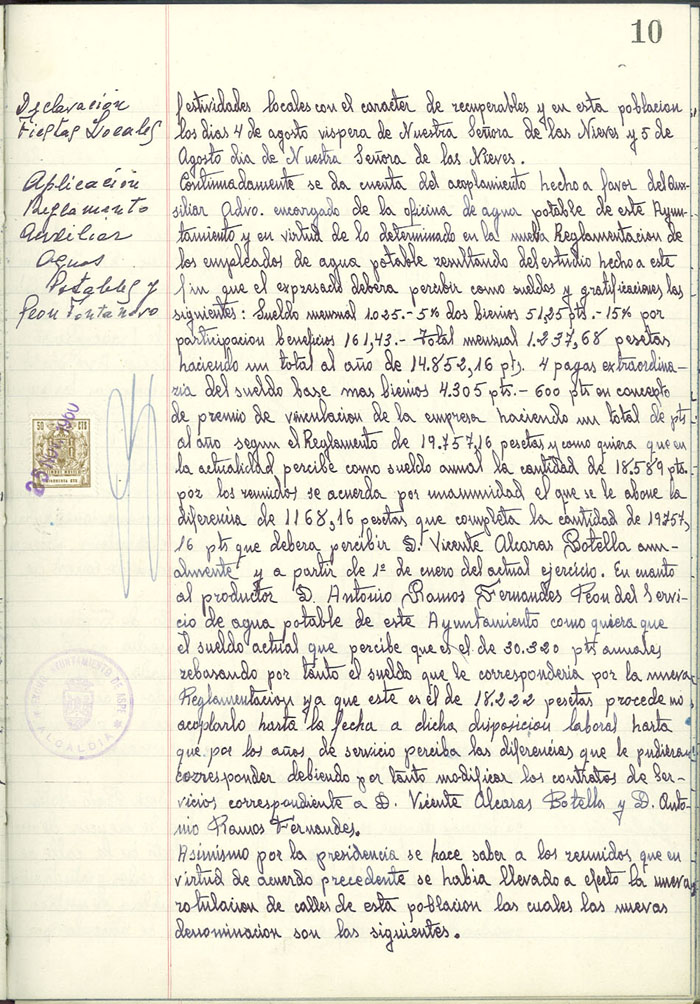 10
Declaración
Fiestas Locales
festividades locales con el caracter de recuperables y en esta poblacion
los dias 4 de agosto vispera de Nuestra Señora de las Nieves y 5 de
Agosto dia de Nuestra Señora de las Nieves.
Aplicación
Reglamento
Auxiliar
Aguas
Potables y
Peon Fontanero
Continuadamente se da cuenta del acoplamiento hecho a favor del Aux-
siliar Advo. encargado de la oficina de agua potable de este Ayun-
tamiento y en virtud de lo determinado en la nueva Reglamentacion de
los empleados de agua potable resultando del estudio hecho a este
fin que el expresado debera percibir como sueldos y gratificaciones las
siguientes: Sueldo mensual 1.025.- 5% dos bienios 51,25 pts. - 15% por
participacion beneficios 161,43.- Total mensual 1.237,68 pesetas
haciendo un total al año de 14.852,16 pts. 4 pagas extraordina-
ria del sueldo base mas bienios 4.305 pts.- 600 pts en concepto
de premio de vinculacion de la empresa haciendo un total de pts
al año segun el Reglamento de 19.757,16 pesetas y como quiera que en
la actualidad percibe como sueldo anual la cantidad de 18.589 pts.
por los reunidos se acuerda por unanimidad el que se le abone la
diferencia de 1168,16 pesetas que completa la cantidad de 19757,
16 pts que debera percibir D. Vicente Alcaras Botella anu-
almente y a partir de 1º de enero del actual ejercicio. En cuanto
al productor D. Antonio Ramos Fernandes Peon del Servi-
cio de agua potable de este Ayuntamiento como quiera que
el sueldo actual que percibe que es el de 20.320 pts anuales
rebasando por tanto el sueldo que le corresponderia por la nueva
Reglamentacion ya que este es el de 18.222 pesetas procede no
acoplarlo hasta la fecha a dicha disposicion laboral hasta
que por los años de servicio perciba las diferencias que le pudieran
corresponder debiendo por tanto modificar los contratos de Ser-
vicios correspondiente a D. Vicente Alcaras Botella y D. Anto-
nio Ramos Fernandes.
Asimismo por la presidencia se hace saber a los reunidos que en
virtud de acuerdo precedente se habia llevado a efecto la nueva
rotulacion de calles de esta poblacion las cuales las nuevas
denominacion son las siguientes.
50 CTS
25 NOV. 1960
AYUNTAMIENTO DE ASPE
ALCALDIA